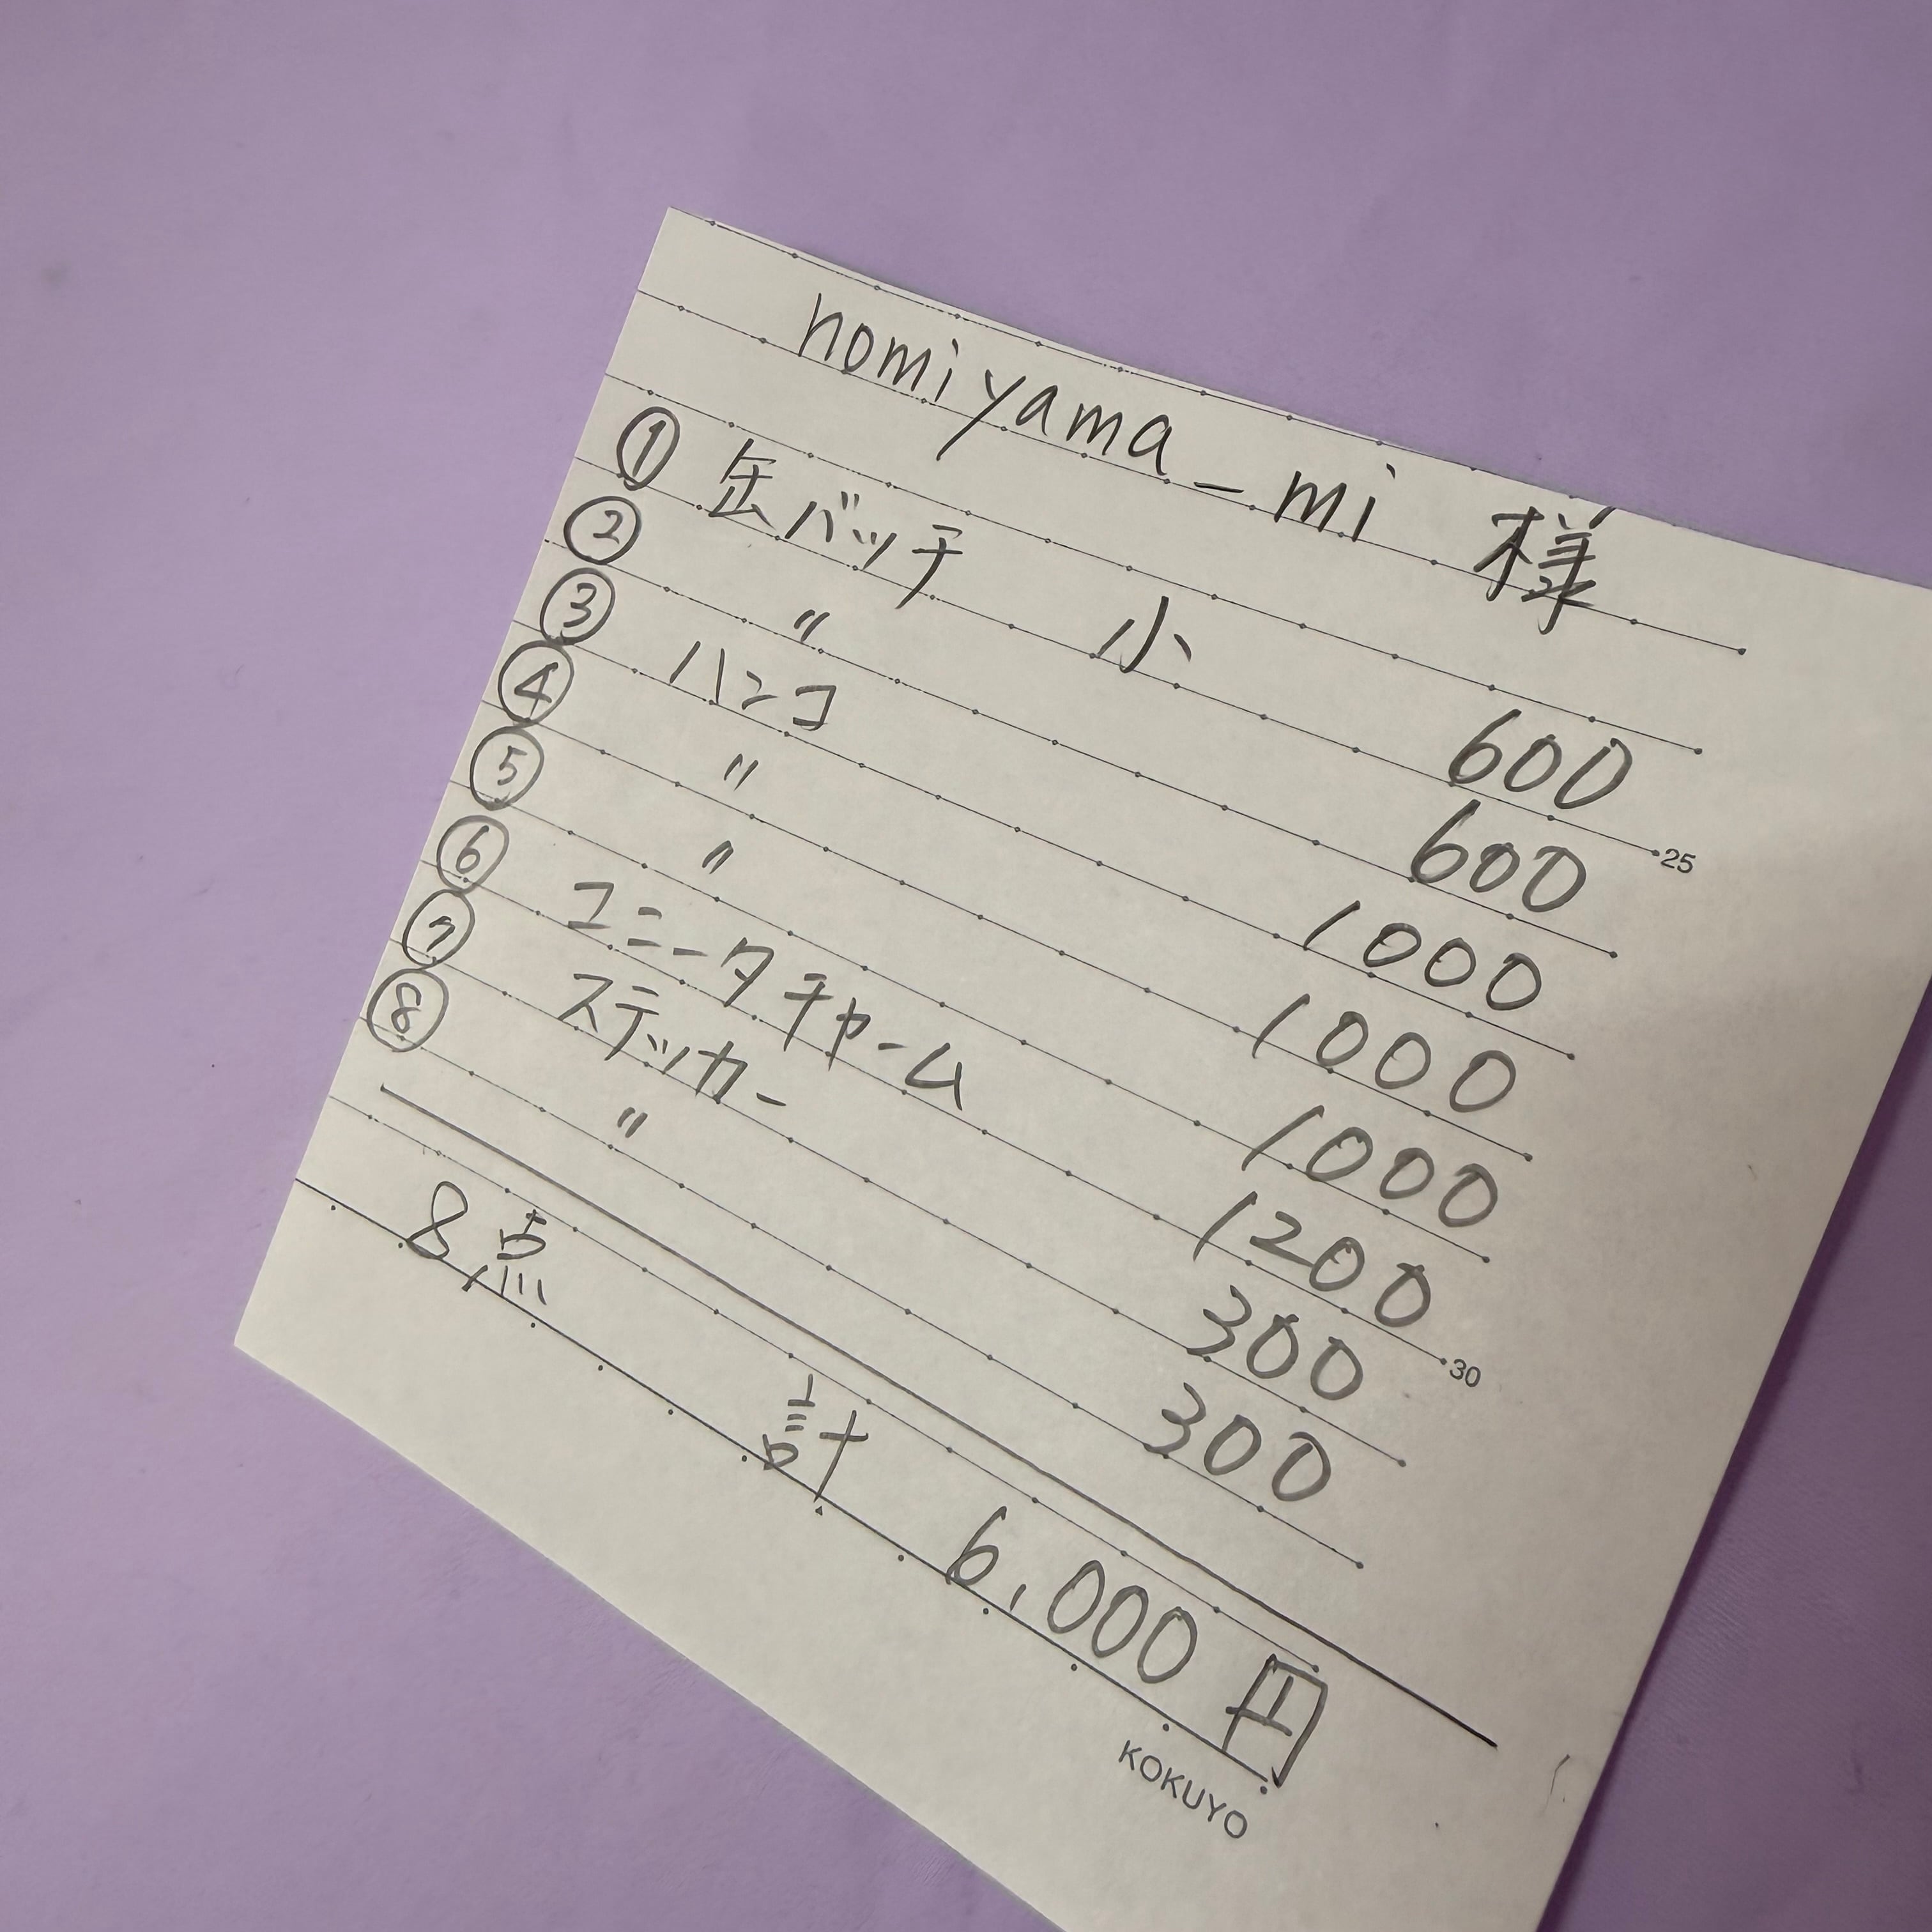 nomiyama_mi 様
① 缶バッチ 小 600
② 〃 600
③ ハンコ 1000
④ 〃 1000
⑤ 〃 1000
⑥ ユニータチャーム 1200
⑦ ステッカー 300
⑧ 〃 300
8点 計 6,000円
25
30
KOKUYO